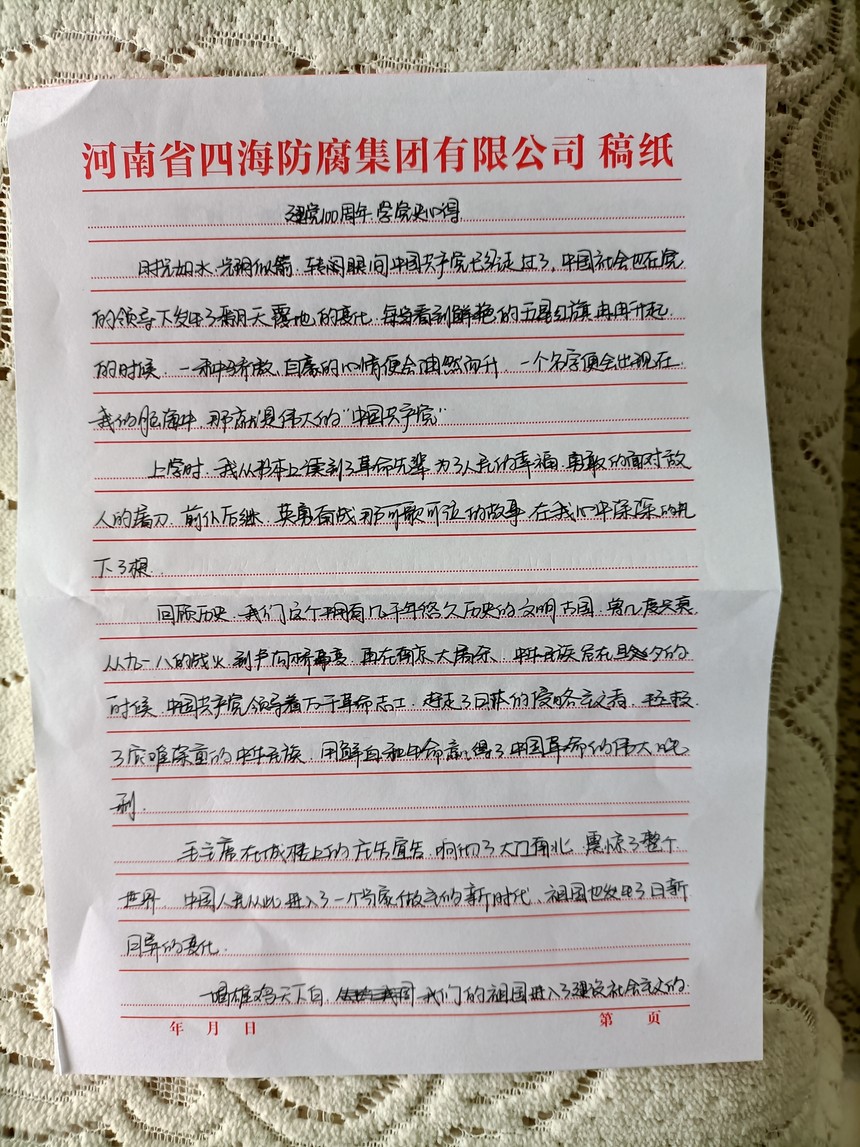 河南省四海防腐集团有限公司 稿纸
建党100周年学党史心得
时光如水,光阴似箭,转阁眼间中国共产党已经走过了,中国社会也在党
的领导下发生了翻天覆地的变化,每当看到鲜艳的五星红旗冉冉升起
的时候,一种骄傲、自豪的心情便会油然而升,一个名字便会出现在
我的脑海中,那就是伟大的“中国共产党”
上学时,我从书本上读到了革命先辈为了人民的幸福,勇敢的面对敌
人的屠刀,前仆后继,英勇奋战,那可歌可泣的故事,在我心中深深的扎
下了根.
回顾历史,我们这个拥有几千年悠久历史的文明古国,曾几度兴衰,
从九一八的战火,到卢沟桥事变,再在南京大屠杀,中华民族危在旦夕的
时候,中国共产党领导着万千革命志士,赶走了日本的侵略主义者,拯救
了灾难深重的中华民族,用鲜血和生命赢得了中国革命的伟大胜
利.
毛主席在城楼上的庄严宣告,响彻了大江南北,震惊了整个
世界,中国人民从此进入了一个当家做主的新时代,祖国也发生了日新
月异的变化.
一唱雄鸡天下白,我们的祖国进入了建设社会主义的
年 月 日
第 页